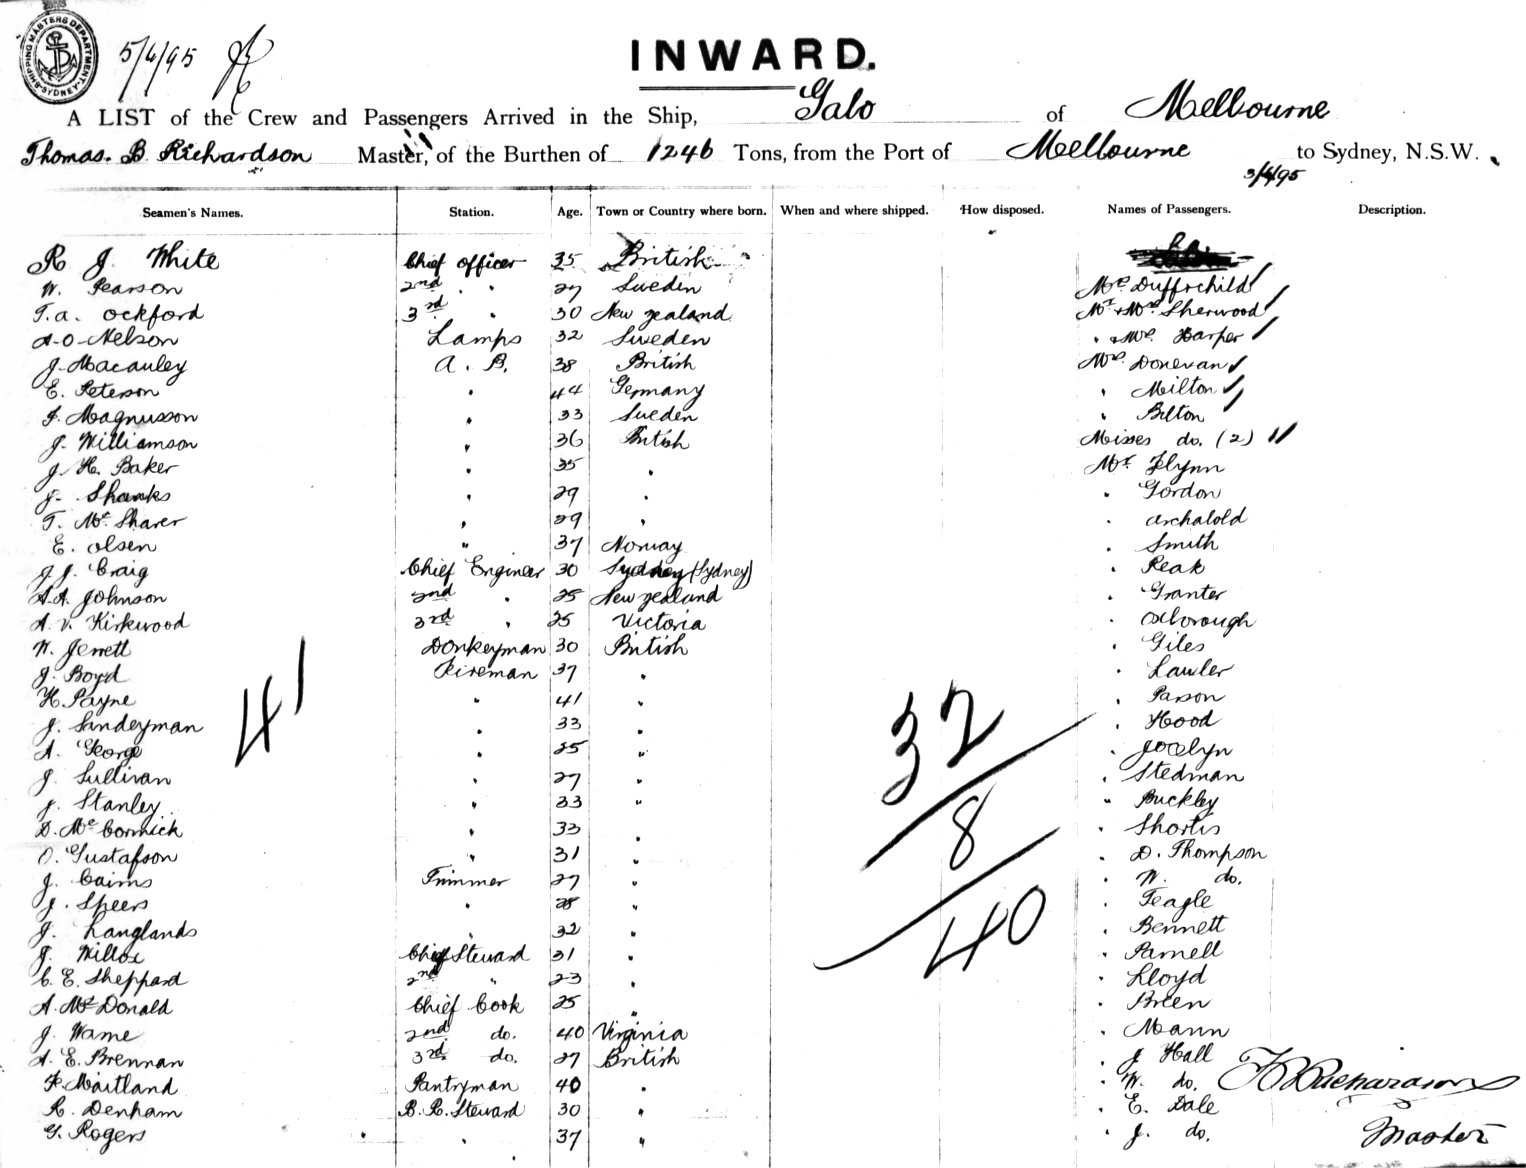 SHIPPING MASTERS DEPARTMENT SYDNEY
5/4/95
INWARD.
A LIST of the Crew and Passengers Arrived in the Ship, Gabo of Melbourne
Thomas. B Richardson Master, of the Burthen of 1246 Tons, from the Port of Melbourne to Sydney, N.S.W.
3/4/95
Seamen's Names. Station. Age. Town or Country where born. When and where shipped. How disposed. Names of Passengers. Description.
R J White Chief officer 35 British
W. Pearson 2nd " 27 Sweden Mrs Duffschild
T. a. Ockford 3rd " 30 New Zealand Mr + Mrs Sherwood
A. O. Nelson Lamps 32 Sweden " + Mrs Harper
J. Macauley A. B. 38 British Mrs. Donevan
E. Peterson " 44 Germany " Milton
J. Magnusson " 33 Sweden " Bilton
J. Williamson " 36 British Misses do. (2)
J. H. Baker " 35 " Mr Flynn
J. Shanks " 29 " " Gordon
T. Mc Sharer " 29 " " Archabold
E. Olsen " 37 Norway " Smith
J. J. Craig Chief Engineer 30 Sydney (Sydney) " Peak
A. A. Johnson 2nd " 25 New Zealand " Granter
A. V. Kirkwood 3rd " 25 Victoria " Oxborough
W. Jewett Donkeyman 30 British " Giles
J. Boyd Fireman 37 " " Lawler
H. Payne " 41 " " Paxon
J. Sandeyman " 33 " " Hood
A. George " 25 " " Jocelyn
J. Sullivan " 27 " " Stedman
J. Stanley " 33 " " Buckley
D. Mc Cormick " 33 " " Shortis
O. Gustafson " 31 " " D. Thompson
J. Cairns Trimmer 27 " " W. do.
J. Speers " 28 " " Teagle
J. Langlands " 32 " " Bennett
J. Willox Chief Steward 31 " " Parnell
C. E. Sheppard 2nd " 23 " " Lloyd
A. Mc Donald Chief Cook 25 " " Breen
J. Wame 2nd do. 40 Virginia " Mann
A. E. Brennan 3rd do. 27 British " J Hall
F. Maitland Pantryman 40 " " W. do.
R. Denham B. R. Steward 30 " " E. Dale
G. Rogers " 37 " " J. do.
41
32
8
40
T B Richardson
Master